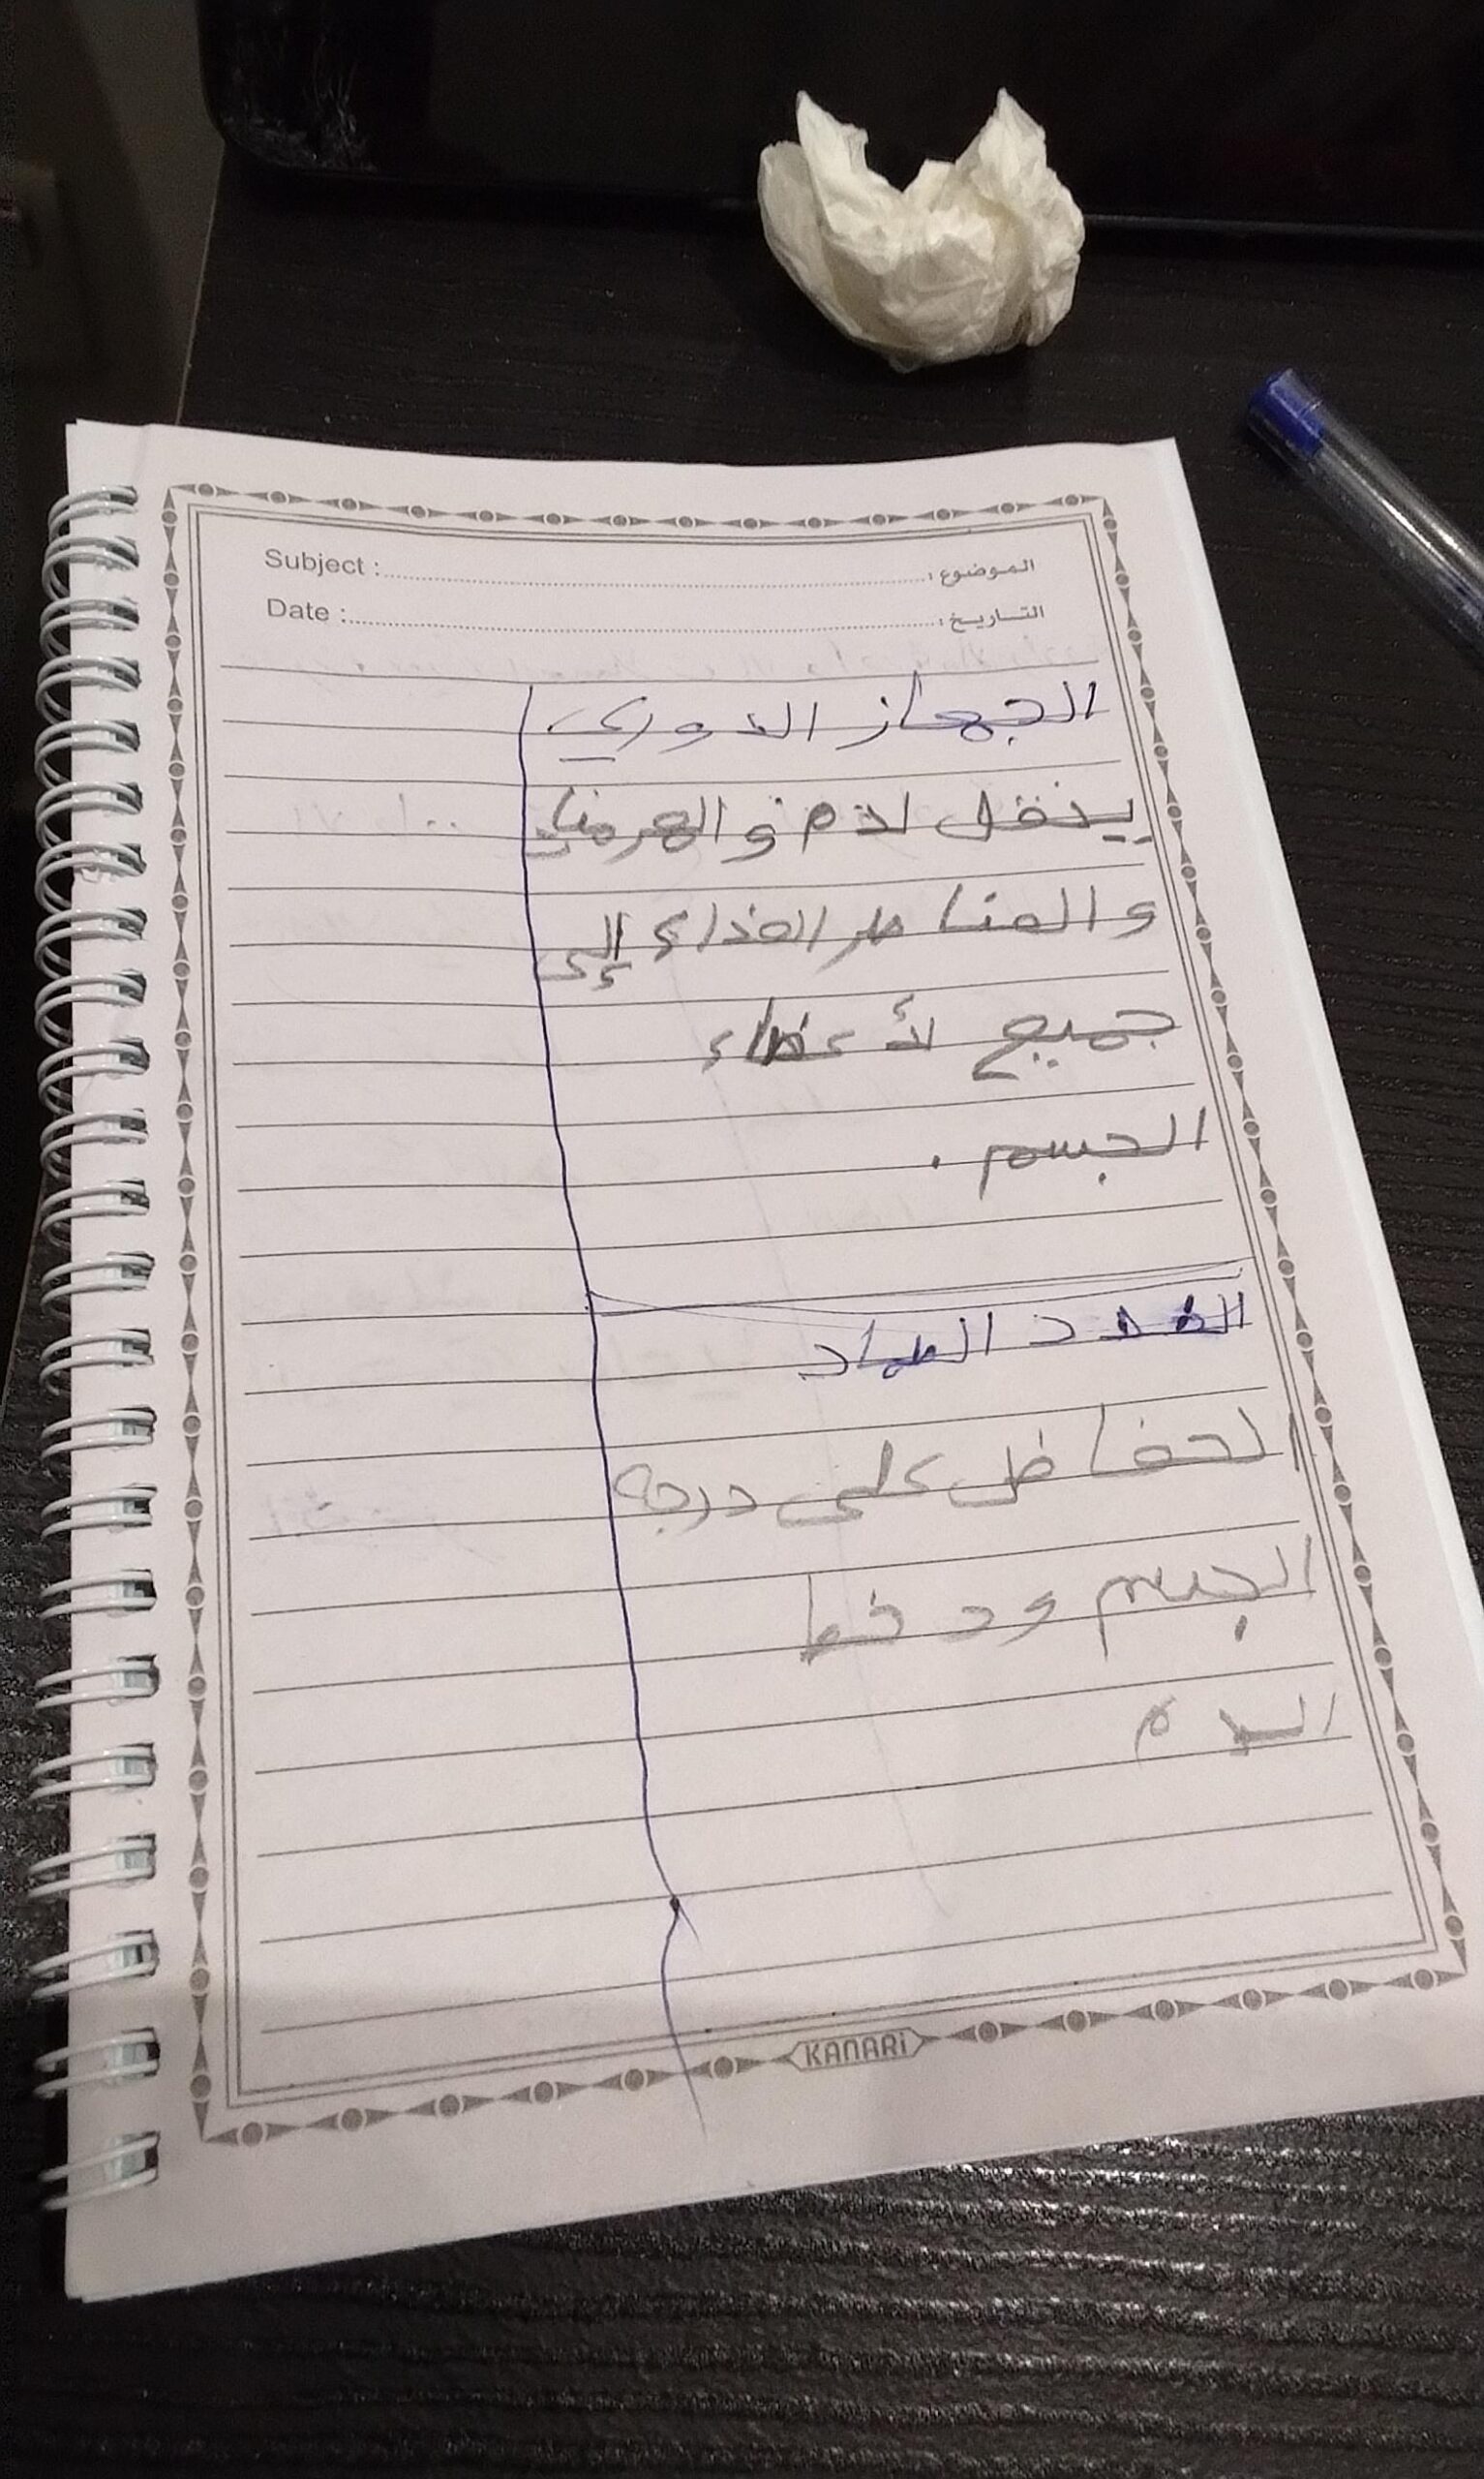 Subject : الموضوع :
Date : التاريخ :
الجهاز الدوري
ينقل لدم و الهرمنات
والعناصر الغذاء إلى
جميع لأعضاء
الجسم .
الغدد الصماد
الحفاظ على درجة
الجسم و د غط
الدم
KANARi